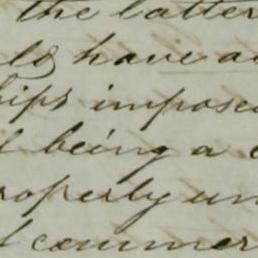 the latter
have a
hips impose
being a
roperly un
commer